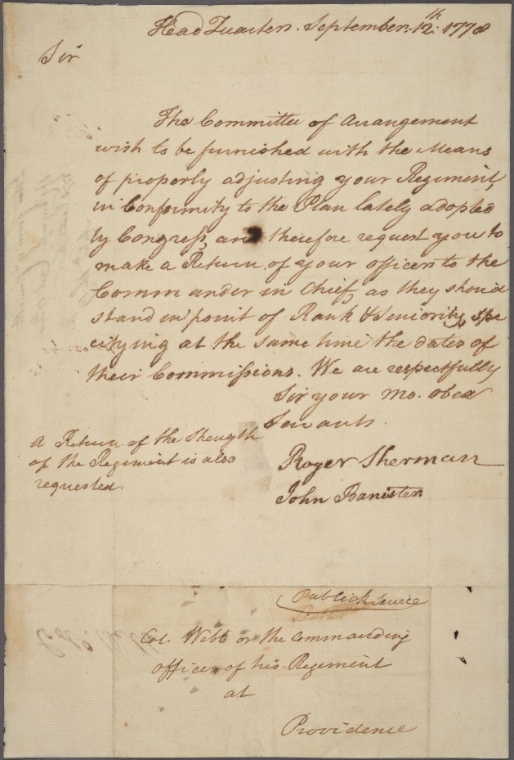 Head Quarters. September. 12th. 1778
Sir
The Committee of Arrangement
wish to be furnished with the Means
of properly adjusting your Regiment,
in Conformity to the Plan lately adopted
by Congress, and therefore request you to
make a Return of your officers to the
Commander in Chief, as they should
stand in point of Rank & Seniority, spe
cifying at the same time the dates of
their Commissions. We are respectfully
Sir your mo. obed
Servants.
A Return of the Strength
of the Regiment is also
requested.
Roger Sherman
John Banister
Publick Service
Col. Webb or the Commanding
officer of his Regiment
at
Providence